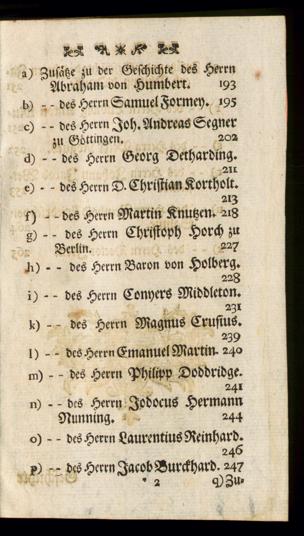 a) Zusätze zu der Geschichte des Herrn
Abraham von Humbert. 193
b) -- des Herrn Samuel Formey. 195
c) -- des Herrn Joh. Andreas Segner
zu Göttingen. 202
d) -- des Herrn Georg Detharding.
211
e) -- des Herrn D. Christian Kortholt.
213
f) -- des Herrn Martin Knutzen. 218
g) -- des Herrn Christoph Horch zu
Berlin. 227
h) -- des Herrn Baron von Holberg.
228
i) -- des Herrn Conyers Middleton.
231
k) -- des Herrn Magnus Crusius.
239
l) -- des Herrn Emanuel Martin. 240
m) -- des Herrn Philipp Doddridge.
241
n) -- des Herrn Jodocus Hermann
Nunning. 244
o) -- des Herrn Laurentius Reinhard.
246
p) -- des Herrn Jacob Burckhard. 247
* 2 q) Zu-